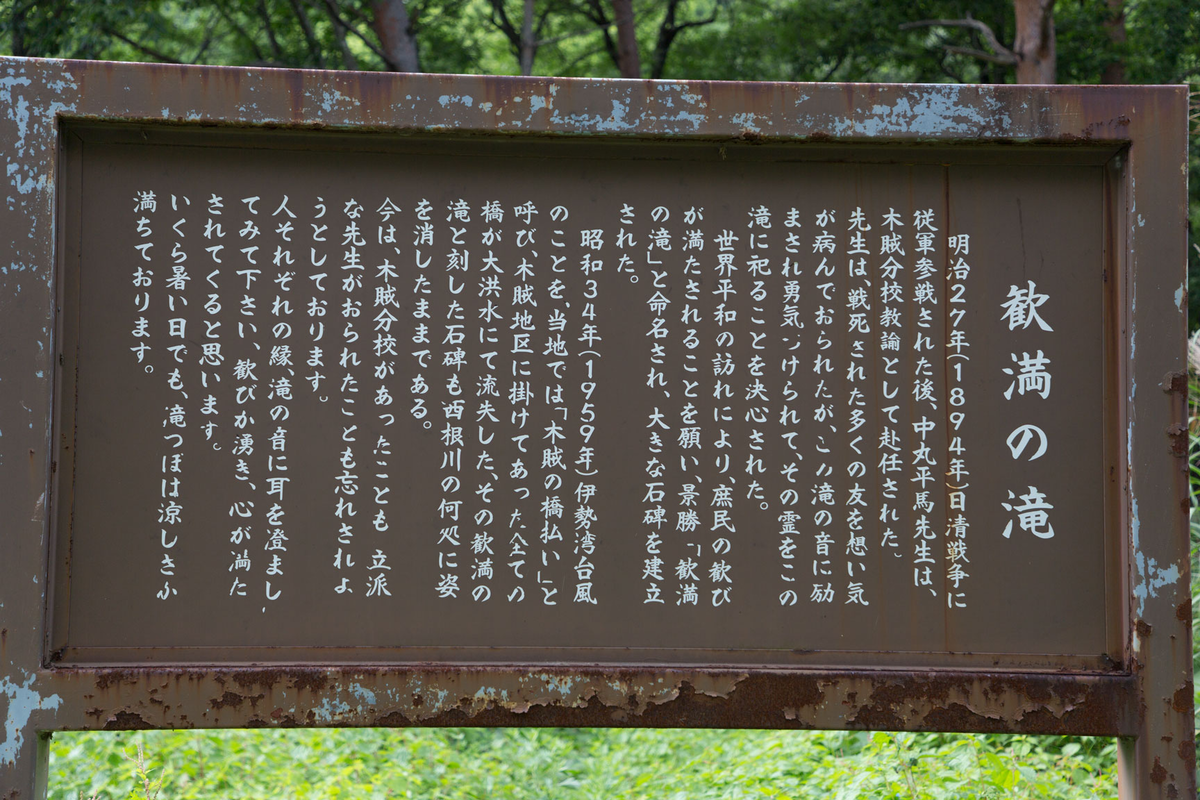 歓満の滝
明治27年(1894年)日清戦争に
従軍参戦された後、中丸平馬先生は、
木賊分校教諭として赴任された。
先生は、戦死された多くの友を想い気
が病んでおられたが、この滝の音に励
まされ勇気づけられて、その霊をこの
滝に祀ることを決心された。
世界平和の訪れにより、庶民の歓び
が満たされることを願い、景勝「歓満
の滝」と命名され、大きな石碑を建立
された。
昭和34年(1959年)伊勢湾台風
のことを、当地では「木賊の橋払い」と
呼び、木賊地区に掛けてあった全ての
橋が大洪水にて流失した、その歓満の
滝と刻した石碑も西根川の何処に姿
を消したままである。
今は、木賊分校があったことも 立派
な先生がおられたことも忘れされよ
うとしております。
人それぞれの縁、滝の音に耳を澄まし、
てみて下さい、歓びか湧き、心が満た
されてくると思います。
いくら暑い日でも、滝つぼは涼しさふ
満ちております。